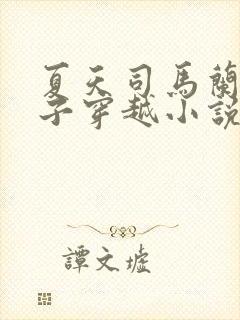 夏天司馬蘭
子穿越小說
譚文墟